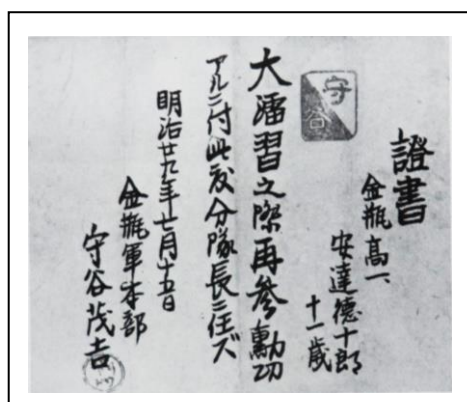 證書
金瓶高一、
安達德十郎
十一歳
守谷
大演習之際再参勳功
アルニ付此度分隊長ニ任ズ
明治廿九年七月十五日
金瓶軍本部
守谷茂吉